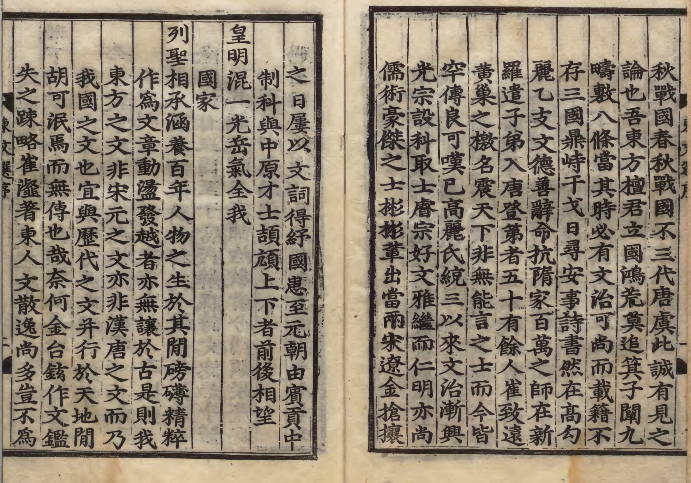 秋戰國春秋戰國不三代唐虞此誠有見之
論也吾東方檀君立國鴻荒莫追箕子闡九
疇敷八條當其時必有文治可尚而載籍不
存三國鼎峙干戈日尋安事詩書然在高勾
麗乙支文德善辭命抗隋家百萬之師在新
羅遣子弟入唐登第者五十有餘人崔致遠
黃巢之檄名震天下非無能言之士而今皆
罕傳良可嘆已高麗氏統三以來文治漸興
光宗設科取士睿宗好文雅繼而仁明亦尚
儒術豪傑之士彬彬輩出當兩宋遼金搶攘
之日屢以文詞得紓國患至元朝由賓貢中
制科與中原才士頡頏上下者前後相望
皇明混一光岳氣全我
國家
列聖相承涵養百年人物之生於其間磅礴精粹
作爲文章動盪發越者亦無讓於古是則我
東方之文非宋元之文亦非漢唐之文而乃
我國之文也宜與歷代之文并行於天地間
胡可泯焉而無傳也哉奈何金台鉉作文鑑
失之疎略崔瀣著東人文散逸尚多豈不爲